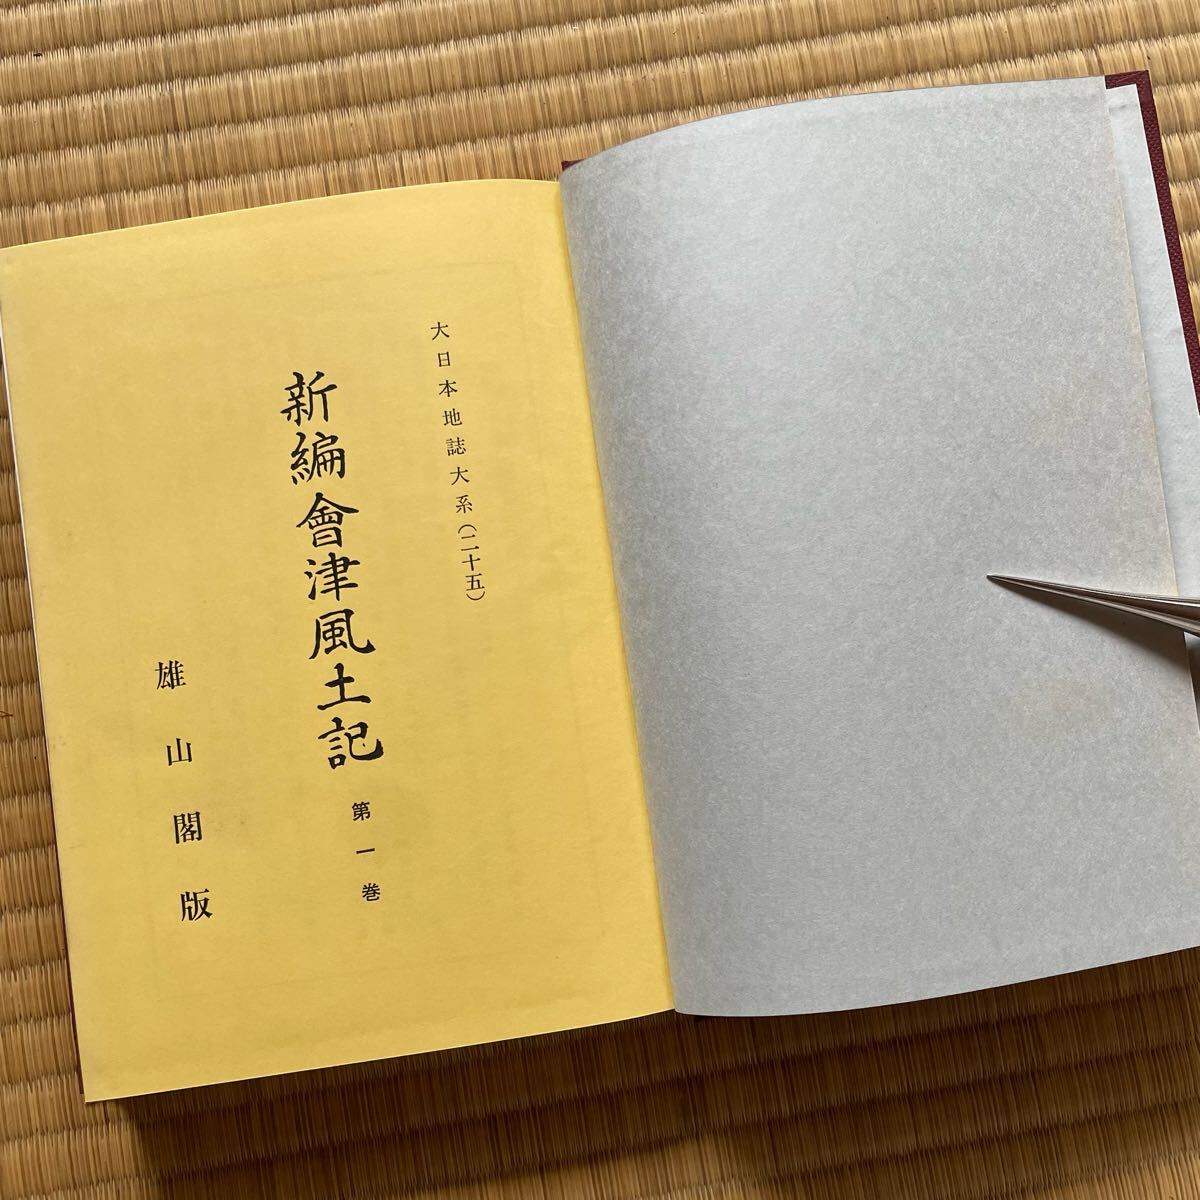 大日本地誌大系(二十五)
新編會津風土記 第一巻
雄山閣版